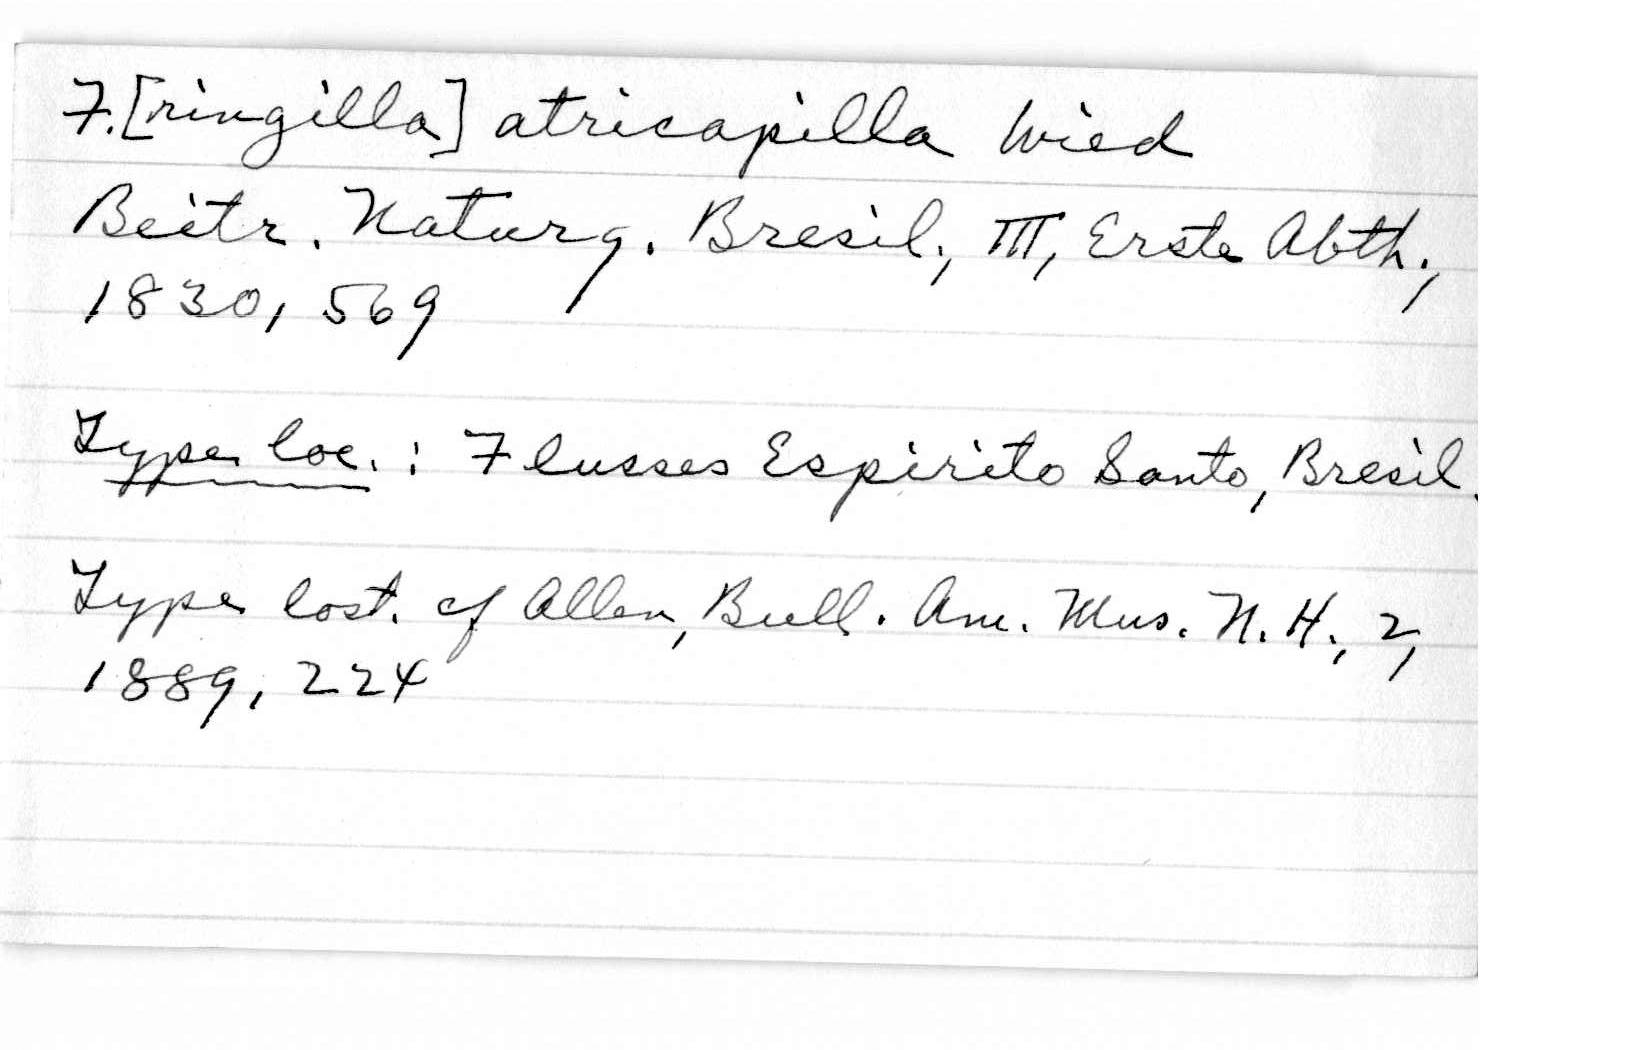 F.[ringilla] atricapilla Wied
Beitr. Naturg. Bresil., III, Erste Abth.,
1830, 569
Type loc.: Flusses Espirito Santo, Bresil.
Type lost. cf Allen, Bull. Am. Mus. N. H., 2,
1889, 224